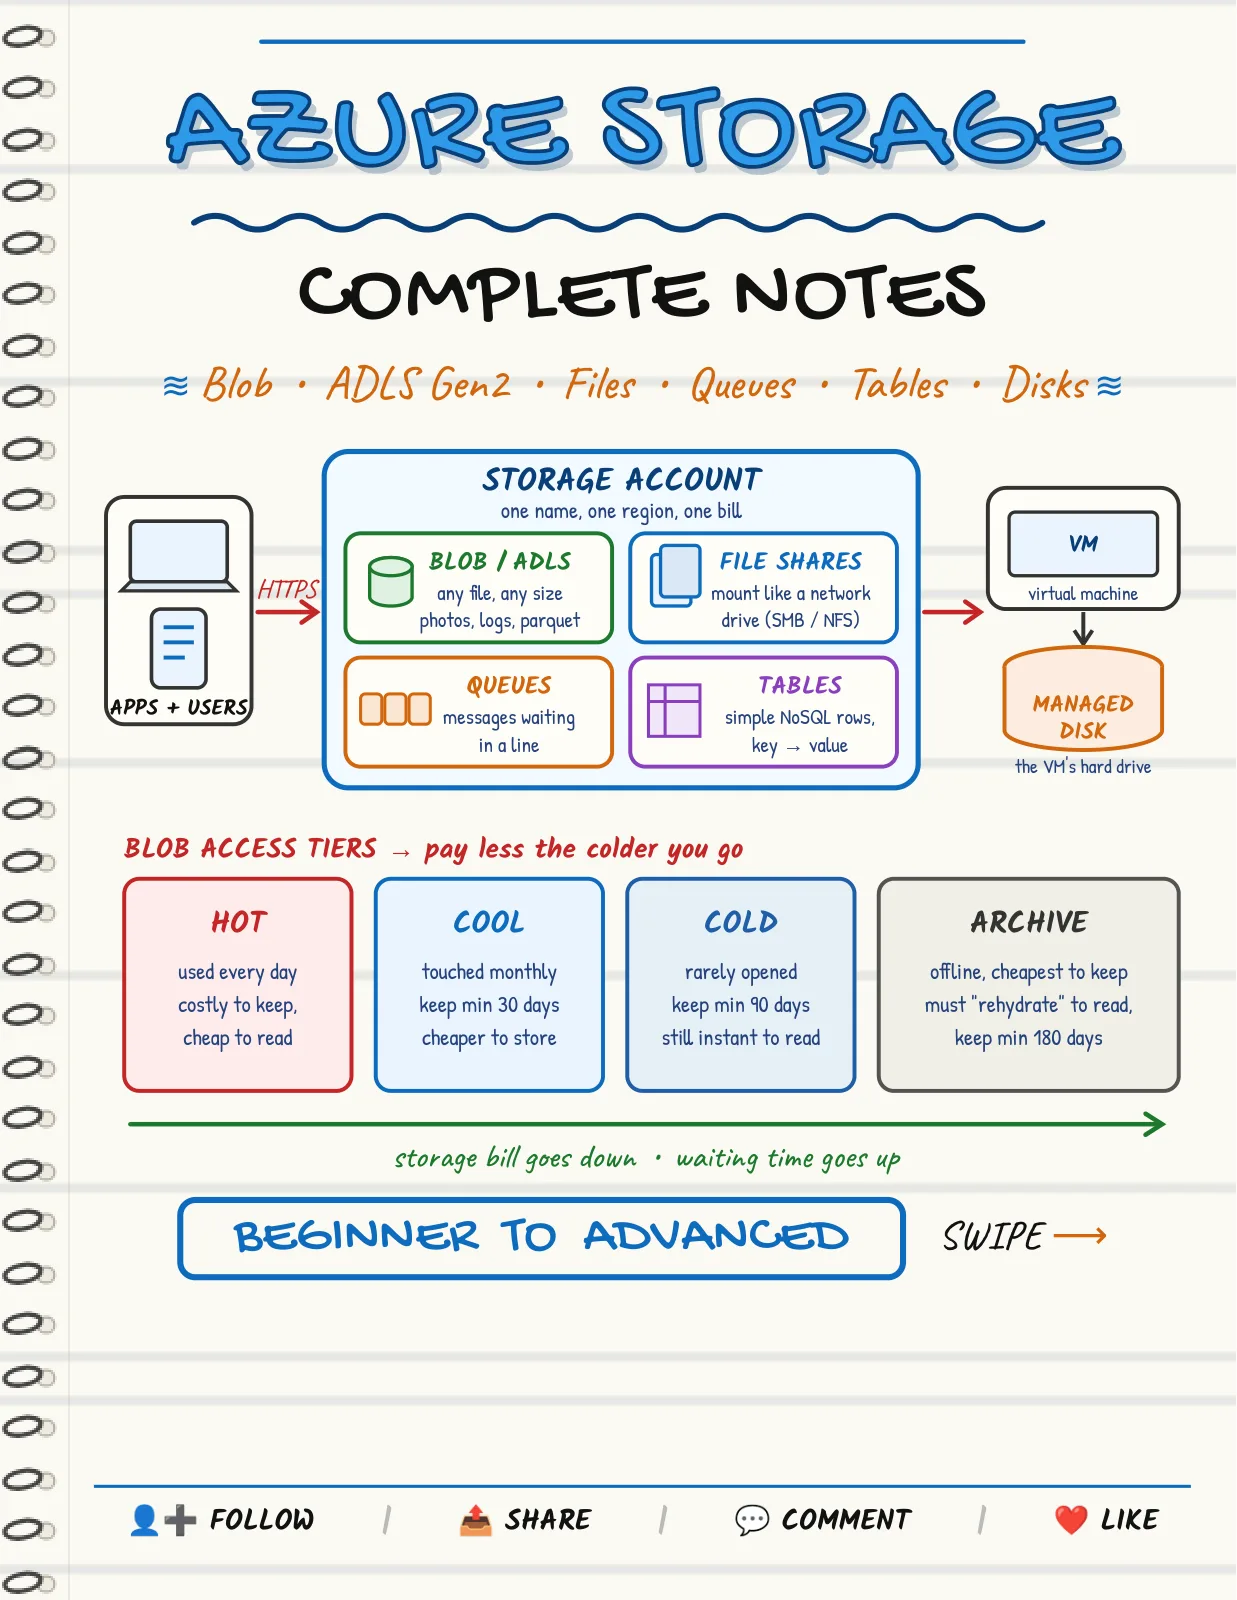 AZURE STORAGE
COMPLETE NOTES
≋ Blob • ADLS Gen2 • Files • Queues • Tables • Disks ≋
STORAGE ACCOUNT
one name, one region, one bill
BLOB / ADLS
any file, any size
photos, logs, parquet
FILE SHARES
mount like a network
drive (SMB / NFS)
QUEUES
messages waiting
in a line
TABLES
simple NoSQL rows,
key → value
HTTPS
APPS + USERS
VM
virtual machine
MANAGED
DISK
the VM's hard drive
BLOB ACCESS TIERS → pay less the colder you go
HOT
used every day
costly to keep,
cheap to read
COOL
touched monthly
keep min 30 days
cheaper to store
COLD
rarely opened
keep min 90 days
still instant to read
ARCHIVE
offline, cheapest to keep
must "rehydrate" to read,
keep min 180 days
storage bill goes down • waiting time goes up
BEGINNER TO ADVANCED
SWIPE →
FOLLOW / SHARE / COMMENT / LIKE